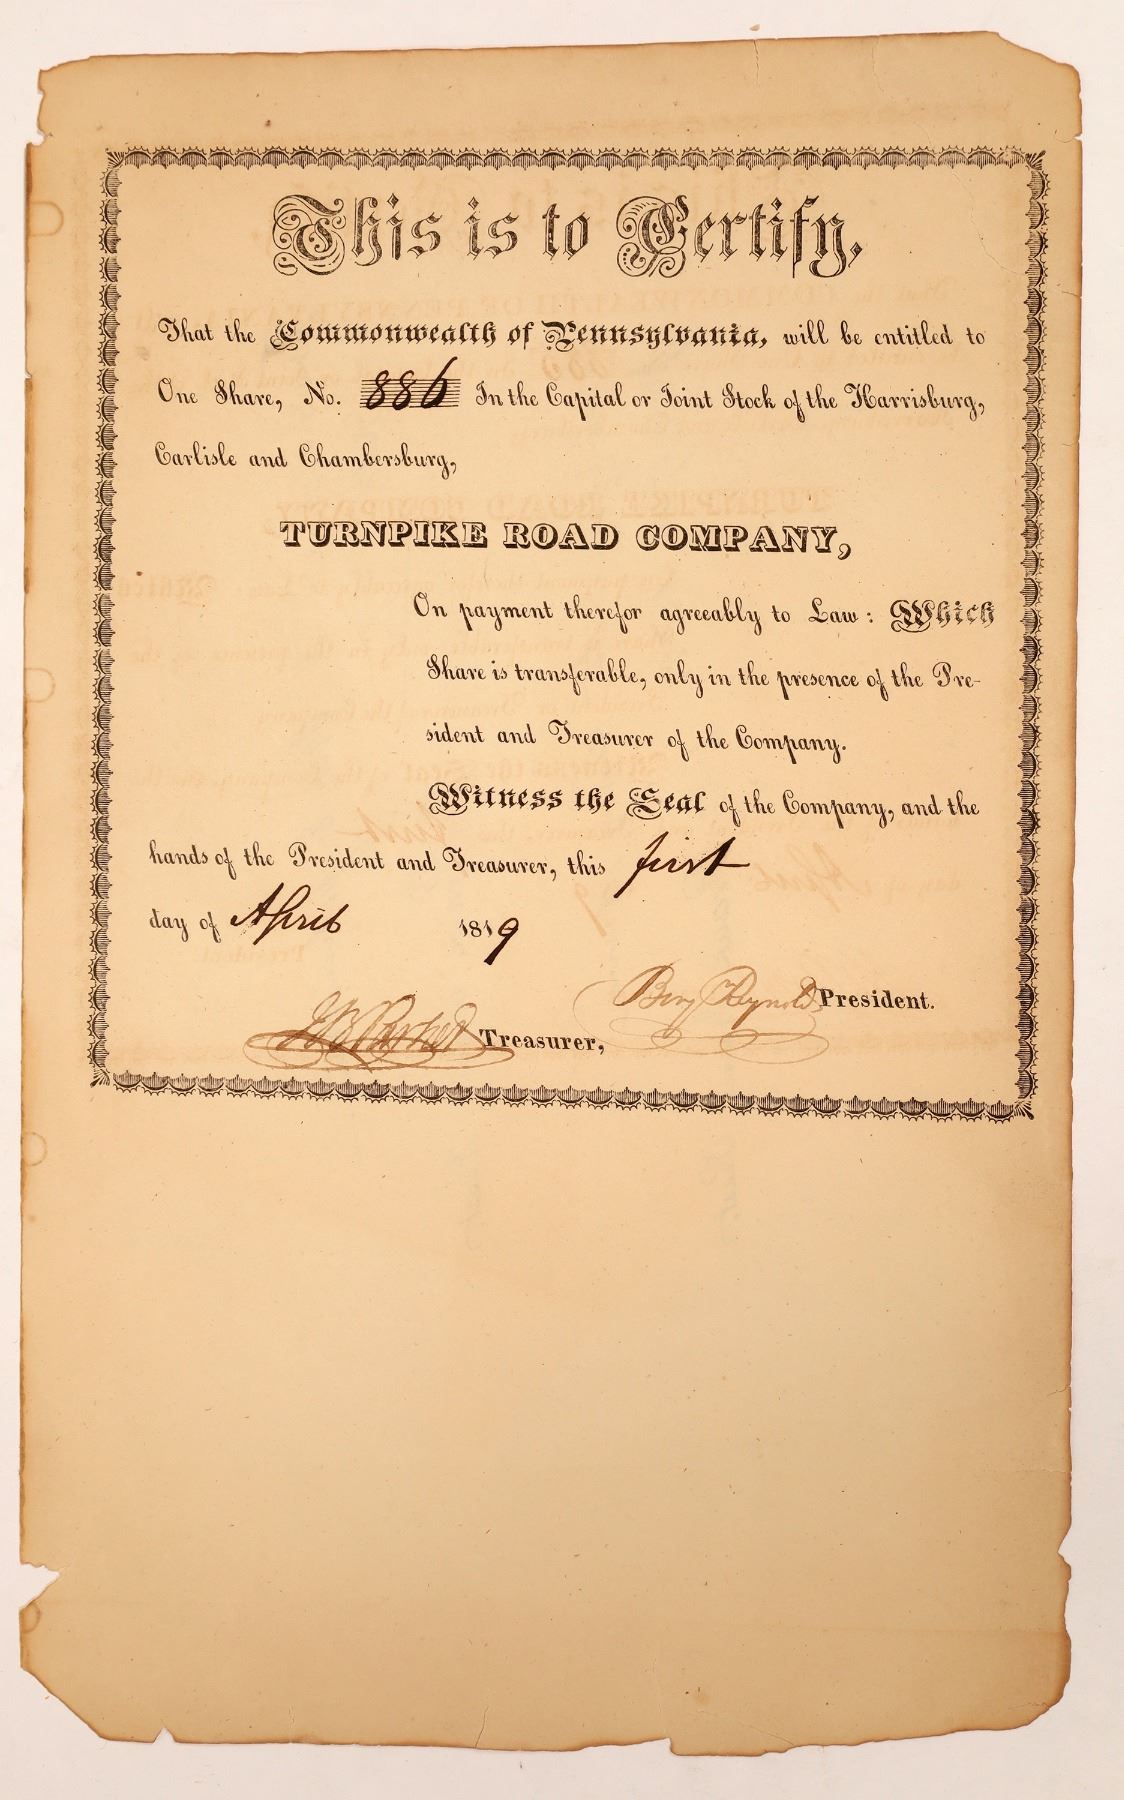 This is to Certify,
That the Commonwealth of Pennsylvania, will be entitled to
One Share, No. 886 In the Capital or Joint Stock of the Harrisburg,
Carlisle and Chambersburg,
TURNPIKE ROAD COMPANY,
On payment therefor agreeably to Law: Which
Share is transferable, only in the presence of the Pre-
sident and Treasurer of the Company.
Witness the Seal of the Company, and the
hands of the President and Treasurer, this first
day of April 1819
Benj Reynolds President.
Parker Treasurer,